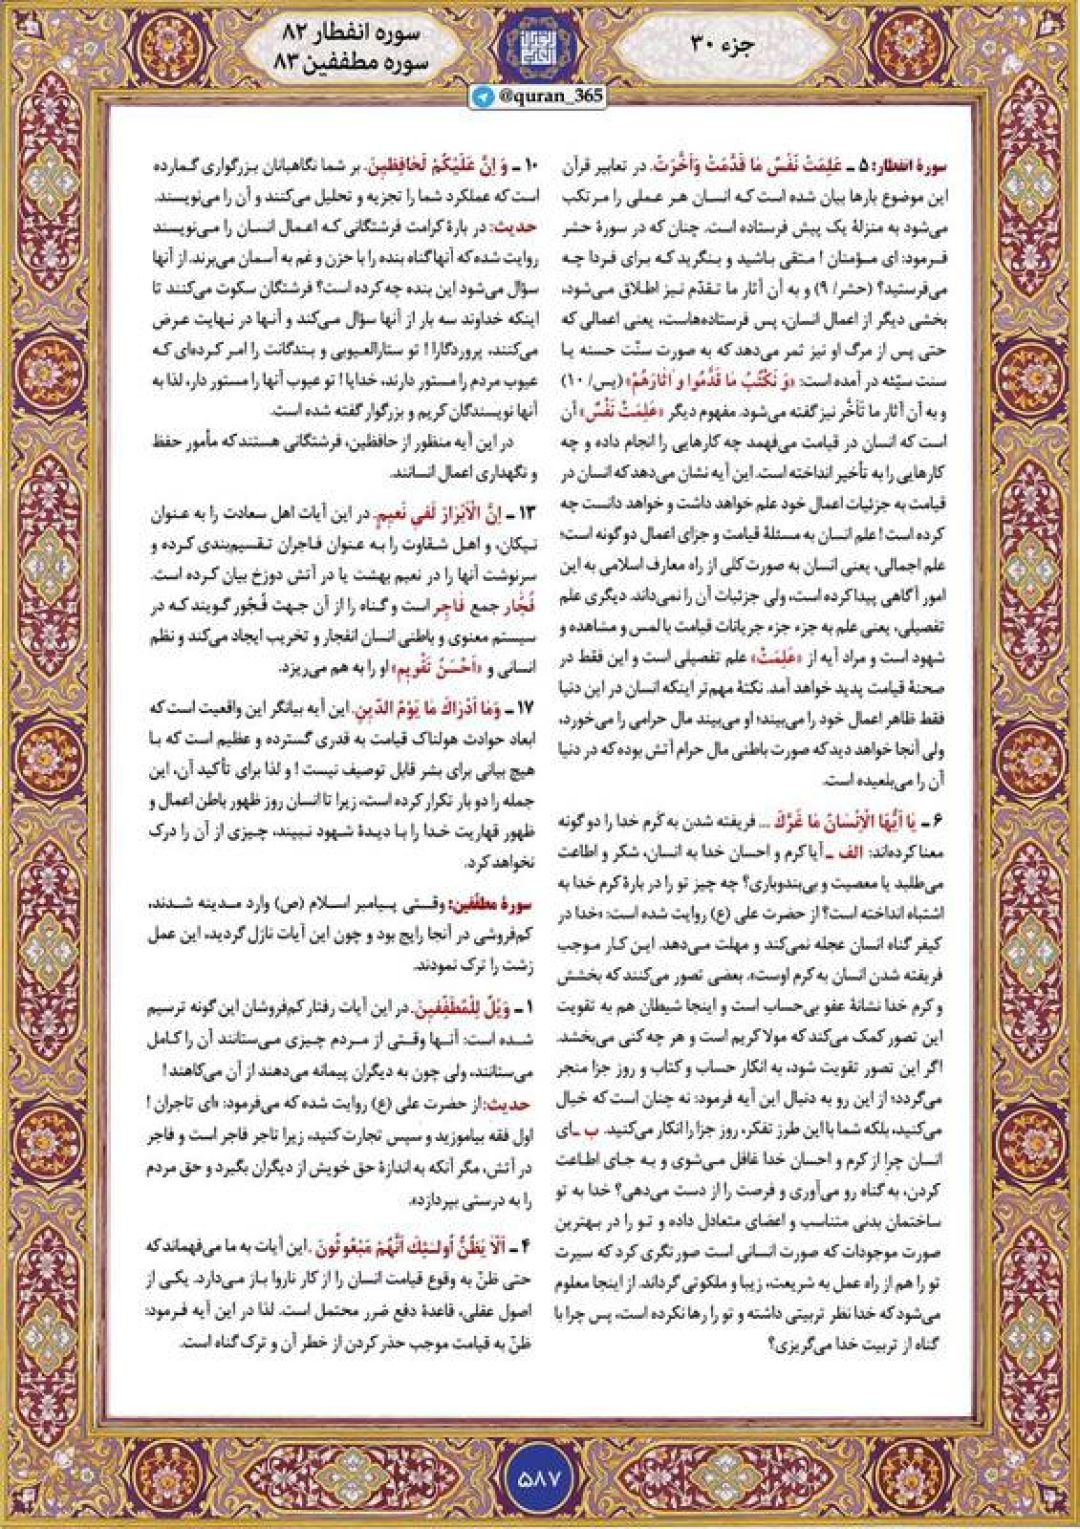 جزء ۳۰
سوره انفطار ۸۲
سوره مطففین ۸۳
@quran_365
سورهٔ انفطار: ۵ ـ عَلِمَتْ نَفْسٌ مَا قَدَّمَتْ وَاَخَّرَتْ. در تعابیر قرآن
این موضوع بارها بیان شده است که انسان هر عملی را مرتکب
می‌شود به منزلهٔ یک پیش فرستاده است. چنان که در سورهٔ حشر
فرمود: ای مؤمنان ! متقی باشید و بنگرید که برای فردا چه
می‌فرستید؟ (حشر/ ۹) و به آن آثار ما تقدّم نیز اطلاق می‌شود،
بخشی دیگر از اعمال انسان، پس فرستاده‌هاست، یعنی اعمالی که
حتی پس از مرگ او نیز ثمر می‌دهد که به صورت سنّت حسنه یا
سنت سیّئه در آمده است: «وَ نَکْتُبُ مَا قَدَّمُوا وَ اٰثَارَهُمْ» (یس/ ۱۰)
و به آن آثار ما تَأَخَّر نیز گفته می‌شود. مفهوم دیگر «عَلِمَتْ نَفْسٌ» آن
است که انسان در قیامت می‌فهمد چه کارهایی را انجام داده و چه
کارهایی را به تأخیر انداخته است. این آیه نشان می‌دهد که انسان در
قیامت به جزئیات اعمال خود علم خواهد داشت و خواهد دانست چه
کرده است ! علم انسان به مسئلهٔ قیامت و جزای اعمال دو گونه است؛
علم اجمالی، یعنی انسان به صورت کلی از راه معارف اسلامی به این
امور آگاهی پیدا کرده است، ولی جزئیات آن را نمی‌داند. دیگری علم
تفصیلی، یعنی علم به جزء جزء جریانات قیامت با لمس و مشاهده و
شهود است و مراد آیه از «عَلِمَتْ» علم تفصیلی است و این فقط در
صحنهٔ قیامت پدید خواهد آمد. نکتهٔ مهم‌تر اینکه انسان در این دنیا
فقط ظاهر اعمال خود را می‌بیند؛ او می‌بیند مال حرامی را می‌خورد،
ولی آنجا خواهد دید که صورت باطنی مال حرام آتش بوده که در دنیا
آن را می‌بلعیده است.
۶ ـ یَا اَیُّهَا الْاِنْسَانُ مَا غَرَّكَ ... فریفته شدن به کَرم خدا را دو گونه
معنا کرده‌اند: الف ـ آیا کرم و احسان خدا به انسان، شکر و اطاعت
می‌طلبد یا معصیت و بی‌بندوباری؟ چه چیز تو را در بارهٔ کرم خدا به
اشتباه انداخته است؟ از حضرت علی (ع) روایت شده است: «خدا در
کیفر گناه انسان عجله نمی‌کند و مهلت می‌دهد. این کار موجب
فریفته شدن انسان به کرم اوست». بعضی تصور می‌کنند که بخشش
و کرم خدا نشانهٔ عفو بی‌حساب است و اینجا شیطان هم به تقویت
این تصور کمک می‌کند که مولا کریم است و هر چه کنی می‌بخشد.
اگر این تصور تقویت شود، به انکار حساب و کتاب و روز جزا منجر
می‌گردد؛ از این رو به دنبال این آیه فرمود: نه چنان است که خیال
می‌کنید، بلکه شما با این طرز تفکر، روز جزا را انکار می‌کنید. ب ـ ای
انسان چرا از کرم و احسان خدا غافل می‌شوی و به جای اطاعت
کردن، به گناه رو می‌آوری و فرصت را از دست می‌دهی؟ خدا به تو
ساختمان بدنی متناسب و اعضای متعادل داده و تو را در بهترین
صورت موجودات که صورت انسانی است صورتگری کرد که سیرت
تو را هم از راه عمل به شریعت، زیبا و ملکوتی گرداند. از اینجا معلوم
می‌شود که خدا نظر تربیتی داشته و تو را رها نکرده است، پس چرا با
گناه از تربیت خدا می‌گریزی؟
۱۰ ـ وَ اِنَّ عَلَیْکُمْ لَحَافِظِینَ. بر شما نگاهبانان بزرگواری گمارده
است که عملکرد شما را تجزیه و تحلیل می‌کنند و آن را می‌نویسند.
حدیث: در بارهٔ کرامت فرشتگانی که اعمال انسان را می‌نویسند
روایت شده که آنها گناه بنده را با حزن و غم به آسمان می‌برند. از آنها
سؤال می‌شود این بنده چه کرده است؟ فرشتگان سکوت می‌کنند تا
اینکه خداوند سه بار از آنها سؤال می‌کند و آنها در نهایت عرض
می‌کنند، پروردگارا ! تو ستارالعیوبی و بندگانت را امر کرده‌ای که
عیوب مردم را مستور دارند، خدایا ! تو عیوب آنها را مستور دار، لذا به
آنها نویسندگان کریم و بزرگوار گفته شده است.
در این آیه منظور از حافظین، فرشتگانی هستند که مأمور حفظ
و نگهداری اعمال انسانند.
۱۳ ـ اِنَّ الْاَبْرَارَ لَفی نَعیمٍ. در این آیات اهل سعادت را به عنوان
نیکان، و اهل شقاوت را به عنوان فاجران تقسیم‌بندی کرده و
سرنوشت آنها را در نعیم بهشت یا در آتش دوزخ بیان کرده است.
فُجَّار جمع فَاجِر است و گناه را از آن جهت فُجُور گویند که در
سیستم معنوی و باطنی انسان انفجار و تخریب ایجاد می‌کند و نظم
انسانی و «اَحْسَنُ تَقْوِیم» او را به هم می‌ریزد.
۱۷ ـ وَمَا اَدْرَاكَ مَا یَوْمُ الدِّینِ. این آیه بیانگر این واقعیت است که
ابعاد حوادث هولناک قیامت به قدری گسترده و عظیم است که با
هیچ بیانی برای بشر قابل توصیف نیست ! و لذا برای تأکید آن، این
جمله را دو بار تکرار کرده است، زیرا تا انسان روز ظهور باطن اعمال و
ظهور قهاریت خدا را با دیدهٔ شهود نبیند، چیزی از آن را درک
نخواهد کرد.
سورهٔ مطفّفین: وقتی پیامبر اسلام (ص) وارد مدینه شدند،
کم‌فروشی در آنجا رایج بود و چون این آیات نازل گردید، این عمل
زشت را ترک نمودند.
۱ ـ وَیْلٌ لِلْمُطَفِّفِینَ. در این آیات رفتار کم‌فروشان این گونه ترسیم
شده است: آنها وقتی از مردم چیزی می‌ستانند آن را کامل
می‌ستانند، ولی چون به دیگران پیمانه می‌دهند از آن می‌کاهند !
حدیث: از حضرت علی (ع) روایت شده که می‌فرمود: «ای تاجران !
اول فقه بیاموزید و سپس تجارت کنید، زیرا تاجر فاجر است و فاجر
در آتش، مگر آنکه به اندازهٔ حق خویش از دیگران بگیرد و حق مردم
را به درستی بپردازد».
۴ ـ اَلَا یَظُنُّ اُولٰئِكَ اَنَّهُمْ مَبْعُوثُونَ. این آیات به ما می‌فهماند که
حتی ظنّ به وقوع قیامت انسان را از کار ناروا باز می‌دارد. یکی از
اصول عقلی، قاعدهٔ دفع ضرر محتمل است. لذا در این آیه فرمود:
ظنّ به قیامت موجب حذر کردن از خطر آن و ترک گناه است.
۵۸۷